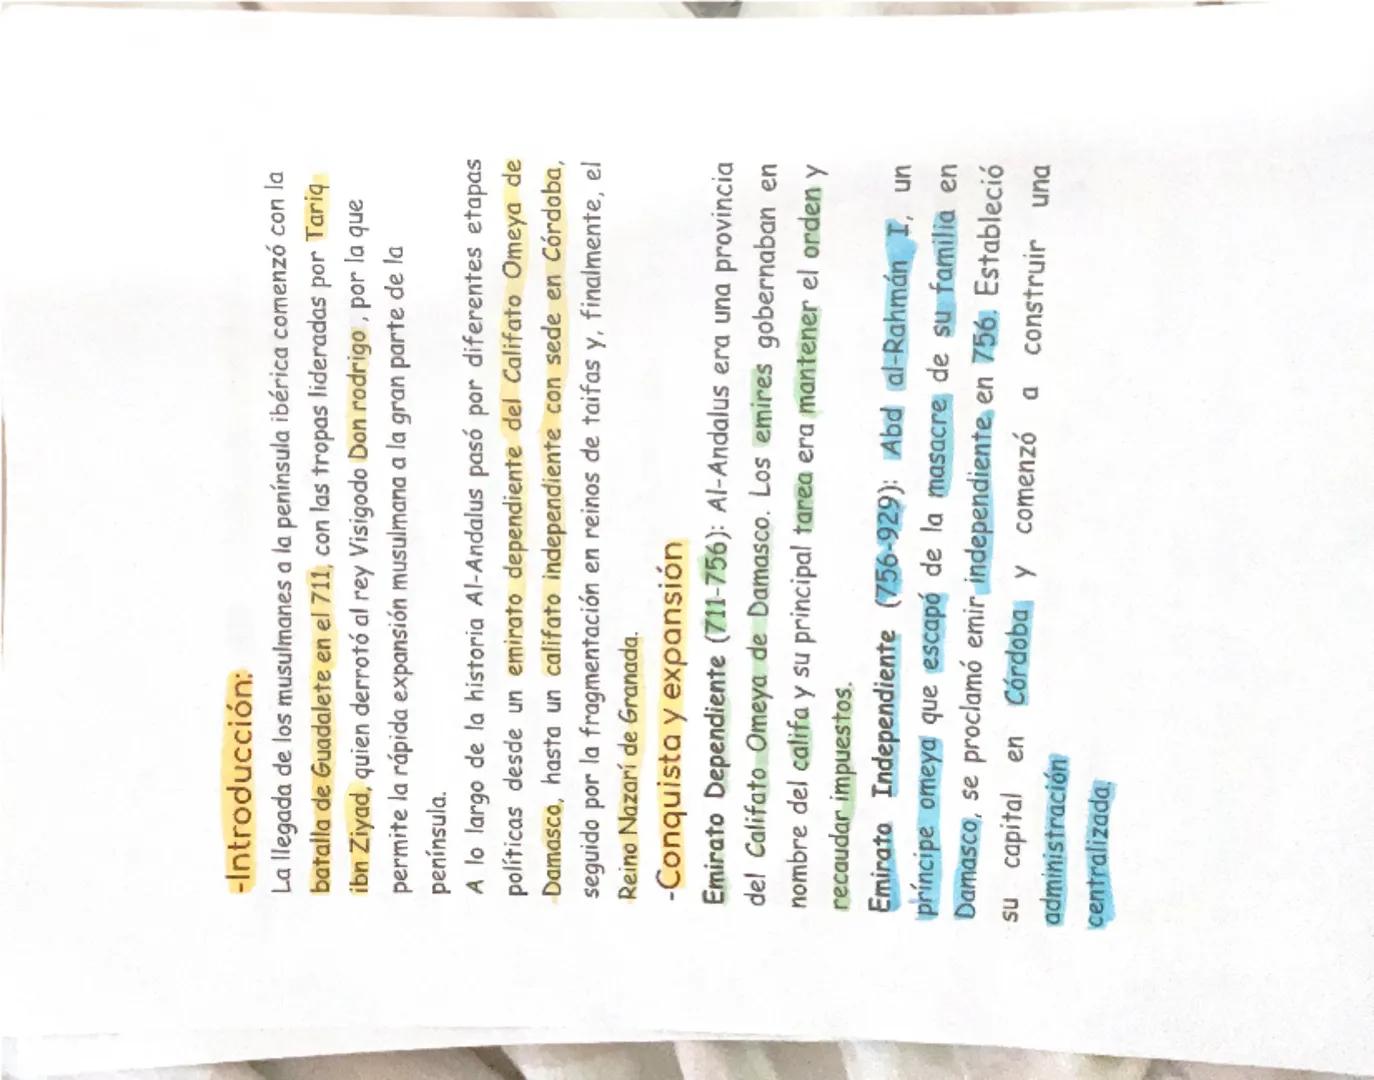 -Introducción:
La llegada de los musulmanes a la península ibérica comenzó con la
batalla de Guadalete en el 711, con las tropas lideradas por Tariq
ibn Ziyad, quien derrotó al rey Visigodo Don rodrigo , por la que
permite la rápida expansión musulmana a la gran parte de la
península.
A lo largo de la historia Al-Andalus pasó por diferentes etapas
políticas desde un emirato dependiente del Califato Omeya de
Damasco, hasta un califato independiente con sede en Córdoba,
seguido por la fragmentación en reinos de taifas y, finalmente, el
Reino Nazarí de Granada.
-Conquista y expansión
Emirato Dependiente (711-756): Al-Andalus era una provincia
del Califato Omeya de Damasco. Los emires gobernaban en
nombre del califa y su principal tarea era mantener el orden y
recaudar impuestos.
Emirato Independiente (756-929): Abd al-Rahmán I, un
príncipe omeya que escapó de la masacre de su familia en
Damasco, se proclamó emir independiente en 756. Estableció
su capital en Córdoba y comenzó a construir una
administración
centralizada,